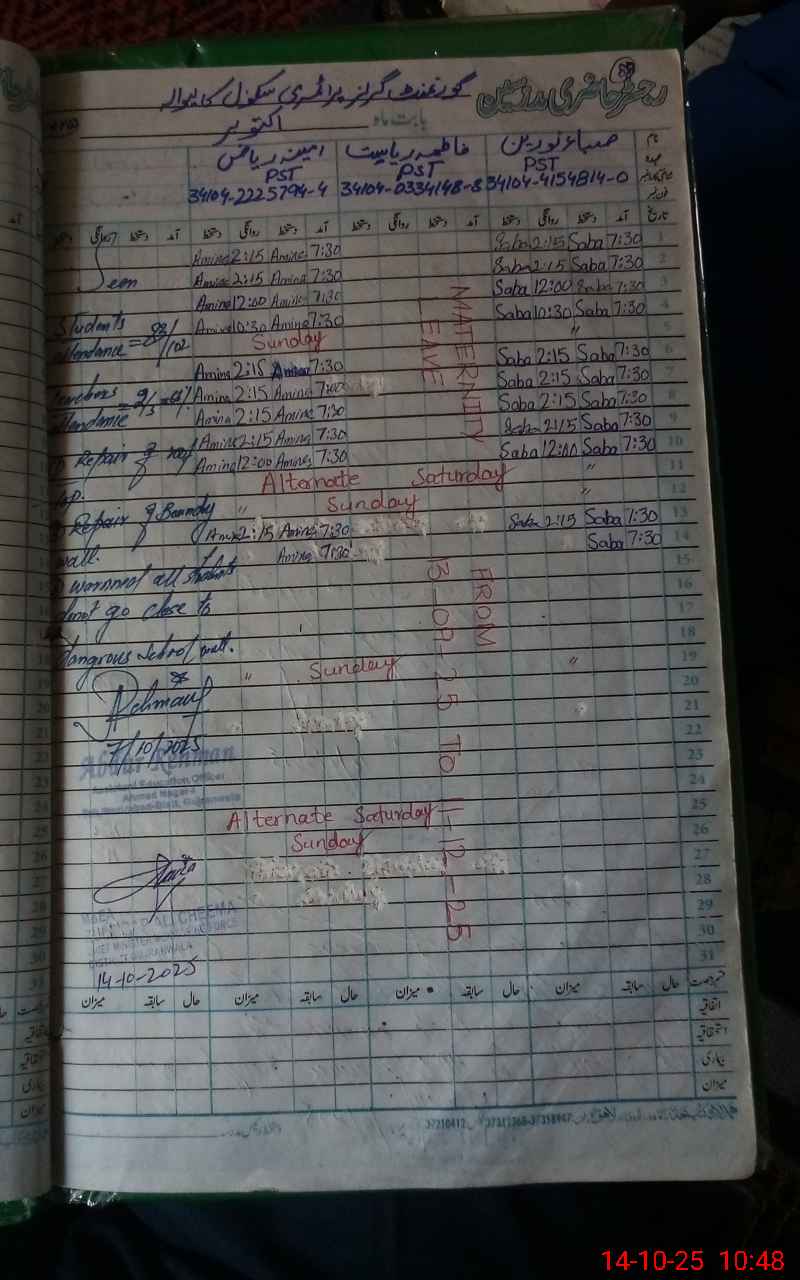 رجسٹر حاضری مدرسین
گورنمنٹ گرلز پرائمری سکول
بابت ماہ اکتوبر
نام صباء نورین فاطمہ ریاست امینہ ریاض
PST PST PST
34104-4154814-0 34104-0334148-8 34104-2225794-4
تاریخ آمد دستخط روانگی دستخط آمد دستخط روانگی دستخط آمد دستخط روانگی دستخط آمد دستخط روانگی دستخط
1 7:30 Saba 2:15 Saba 7:30 Amina 2:15 Amina
2 7:30 Saba 2:15 Saba 7:30 Amina 2:15 Amina
3 7:30 Saba 12:00 Saba 7:30 Amina 12:00 Amina
4 7:30 Saba 10:30 Saba 7:30 Amina 10:30 Amina
5 " Sunday
6 7:30 Saba 2:15 Saba 7:30 Amina 2:15 Amina
7 7:30 Saba 2:15 Saba 7:00 Amina 2:15 Amina
8 7:30 Saba 2:15 Saba 7:30 Amina 2:15 Amina
9 7:30 Saba 2:15 Saba 7:30 Amina 2:15 Amina
10 7:30 Saba 12:00 Saba 7:30 Amina 12:00 Amina
11 " Alternate Saturday
12 " Sunday "
13 7:30 Saba 2:15 Saba 7:30 Amina 2:15 Amina
14 7:30 Saba 7:30 Amina
15
16
17
18
19 " Sunday "
20
21
22
23
24
25 Alternate Saturday
26 Sunday
27
28
29
30
31
MATERNITY LEAVE
FROM 13-09-25 To 11-12-25
Seen
Students
attendance = 88/102
Teachers
attendance = 2/3
Repair of
Repair of Boundry
wall.
warnned all students
donot go close to
dangrous school wall.
Rehman
7/10/2025
Abdur Rehman
Assistant Education Officer
Ahmad Nagar
MEA
ALI CHEEMA
CHIEF MINISTER MONITORING FORCE
DISTRICT GUJRANWALA
14-10-2025
حال سابقہ میزان حال سابقہ میزان حال سابقہ میزان حال سابقہ میزان
اتفاقیہ
استحقاقیہ
بیماری
میزان
14-10-25 10:48